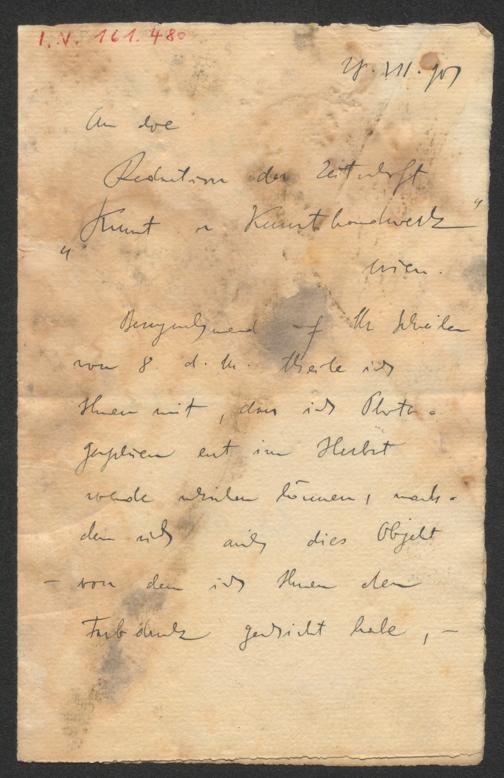 I.N. 161.480
VII. 901
An die
Redaction der Zeitschrift
„Kunst u Kunsthandwerk"
Wien.
Bezugnehmend auf Ihr Schreiben
vom 8 d. M. theile ich
Ihnen mit, dass ich Photo-
graphien erst im Herbst
werde schicken können, nach-
dem sich auch dies Objekt
– von dem ich Ihnen den
Farbdruck geschickt habe, –